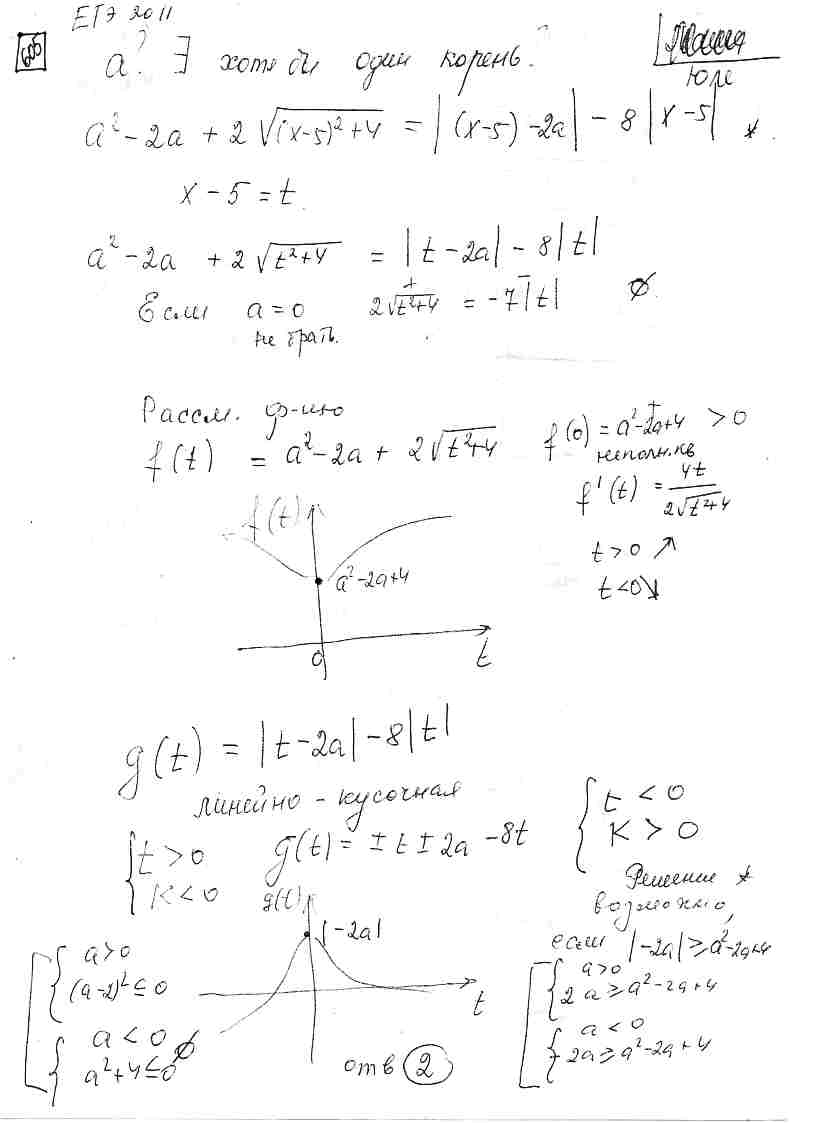 ЕГЭ 2011
а? ∃ хотя бы один корень.
Юле
a² - 2a + 2√((x-5)² + 4) = |(x-5) - 2a| - 8|x-5| *
x - 5 = t
a² - 2a + 2√(t²+4) = |t - 2a| - 8|t|
Если a = 0 2√(t²+4) = -7|t| ∅
+ -
Рассм. ф-ию
f(t) = a² - 2a + 2√(t²+4)
f(0) = a² - 2a + 4 > 0
неполн. кв
f'(t) = 4t / 2√(t²+4)
t > 0 ↗
t < 0 ↘
f(t)
a² - 2a + 4
0
t
g(t) = |t - 2a| - 8|t|
линейно - кусочная
{ t > 0
K < 0
g(t) = ± t ± 2a - 8t
{ t < 0
K > 0
g(t)
|-2a|
t
Решение *
возможно,
если |-2a| ≥ a² - 2a + 4
[ { a > 0
2a ≥ a² - 2a + 4
{ a < 0
-2a ≥ a² - 2a + 4
[ { a > 0
(a-2)² ≤ 0
{ a < 0
a² + 4 ≤ 0 ∅
отв 2